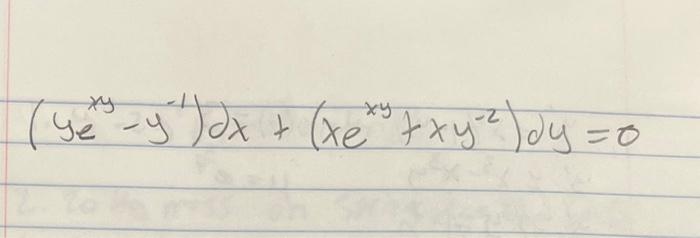 (ye^{xy} - y^{-1})dx + (xe^{xy} + xy^{-2})dy = 0